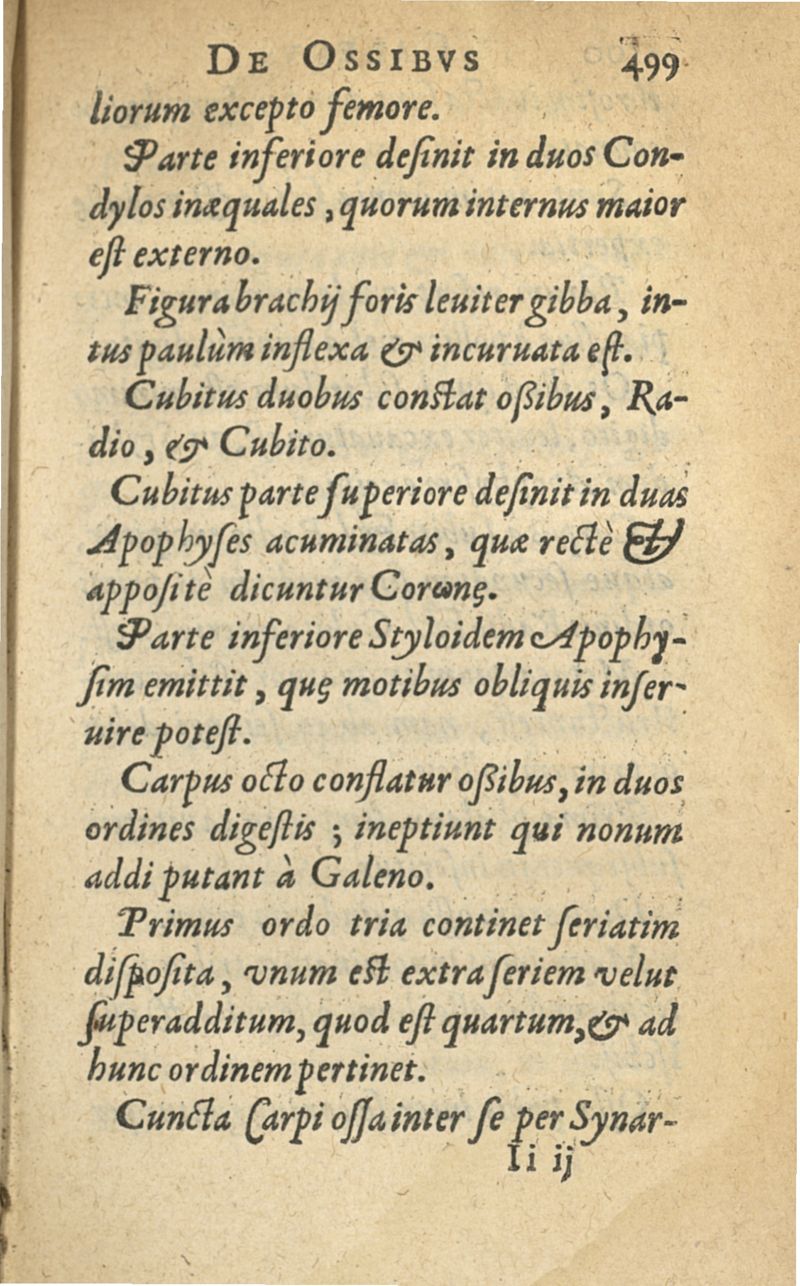 DE OSSIBVS 499
liorum excepto femore.
Parte inferiore deſinit in duos Con-
dylos inæquales, quorum internus maior
eſt externo.
Figura brachij foris leuiter gibba, in-
tus paulùm inflexa & incuruata eſt.
Cubitus duobus conſtat oßibus, Ra-
dio, & Cubito.
Cubitus parte ſuperiore deſinit in duas
Apophyſes acuminatas, quæ rectè &
appoſitè dicuntur Corωnę.
Parte inferiore Styloidem Apophy-
ſim emittit, quę motibus obliquis inſer-
uire poteſt.
Carpus octo conflatur oßibus, in duos
ordines digeſtis ; ineptiunt qui nonum
addi putant à Galeno.
Primus ordo tria continet ſeriatim
diſpoſita, vnum eſt extra ſeriem velut
ſuperadditum, quod eſt quartum, & ad
hunc ordinem pertinet.
Cuncta Carpi oſſa inter ſe per Synar-
Ii ij